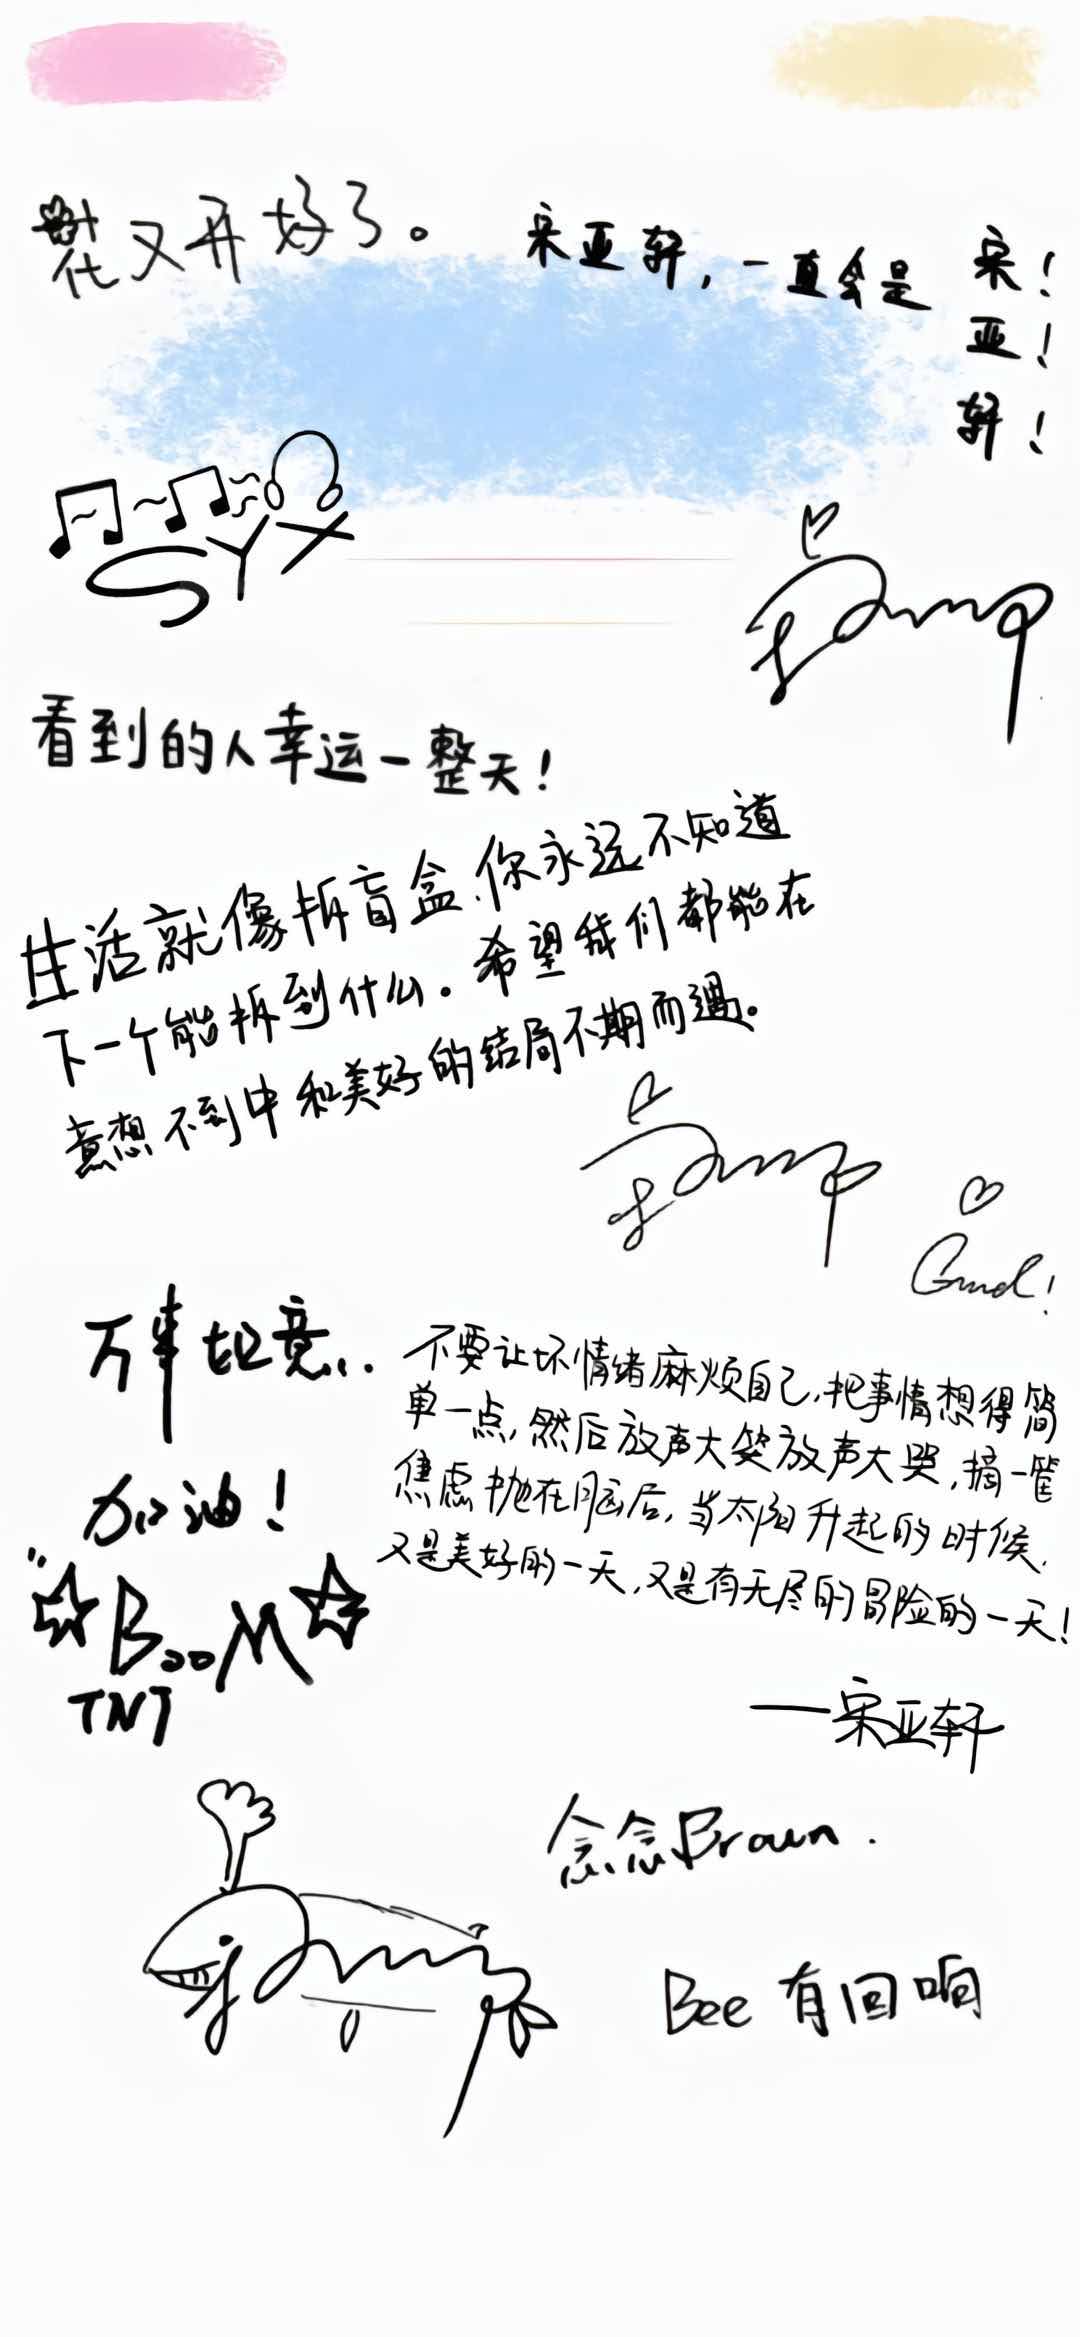 花又开好了。
宋亚轩，一直会是
宋！
亚！
轩！
SYX
看到的人幸运一整天！
生活就像拆盲盒，你永远不知道
下一个能拆到什么。希望我们都能在
意想不到中和美好的结局不期而遇。
Good!
万事如意..
加油！
BooM
TNT
不要让坏情绪麻烦自己，把事情想得简
单一点，然后放声大笑放声大哭，摘一筐
焦虑抛在脑后，当太阳升起的时候，
又是美好的一天，又是有无尽的冒险的一天！
——宋亚轩
念念Brown.
Bee有回响